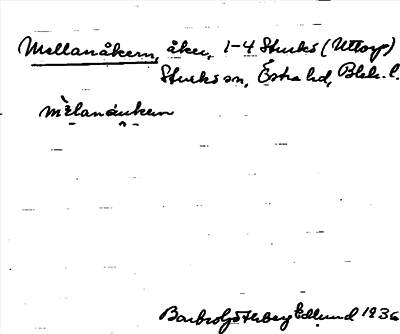 Mellanåkern, åker, 1-4 Sturkö (Uttorp)
Sturkö sn, Östra hd, Blek. l.
mèlanåukern
Barbro Söderberg Edlund 1936